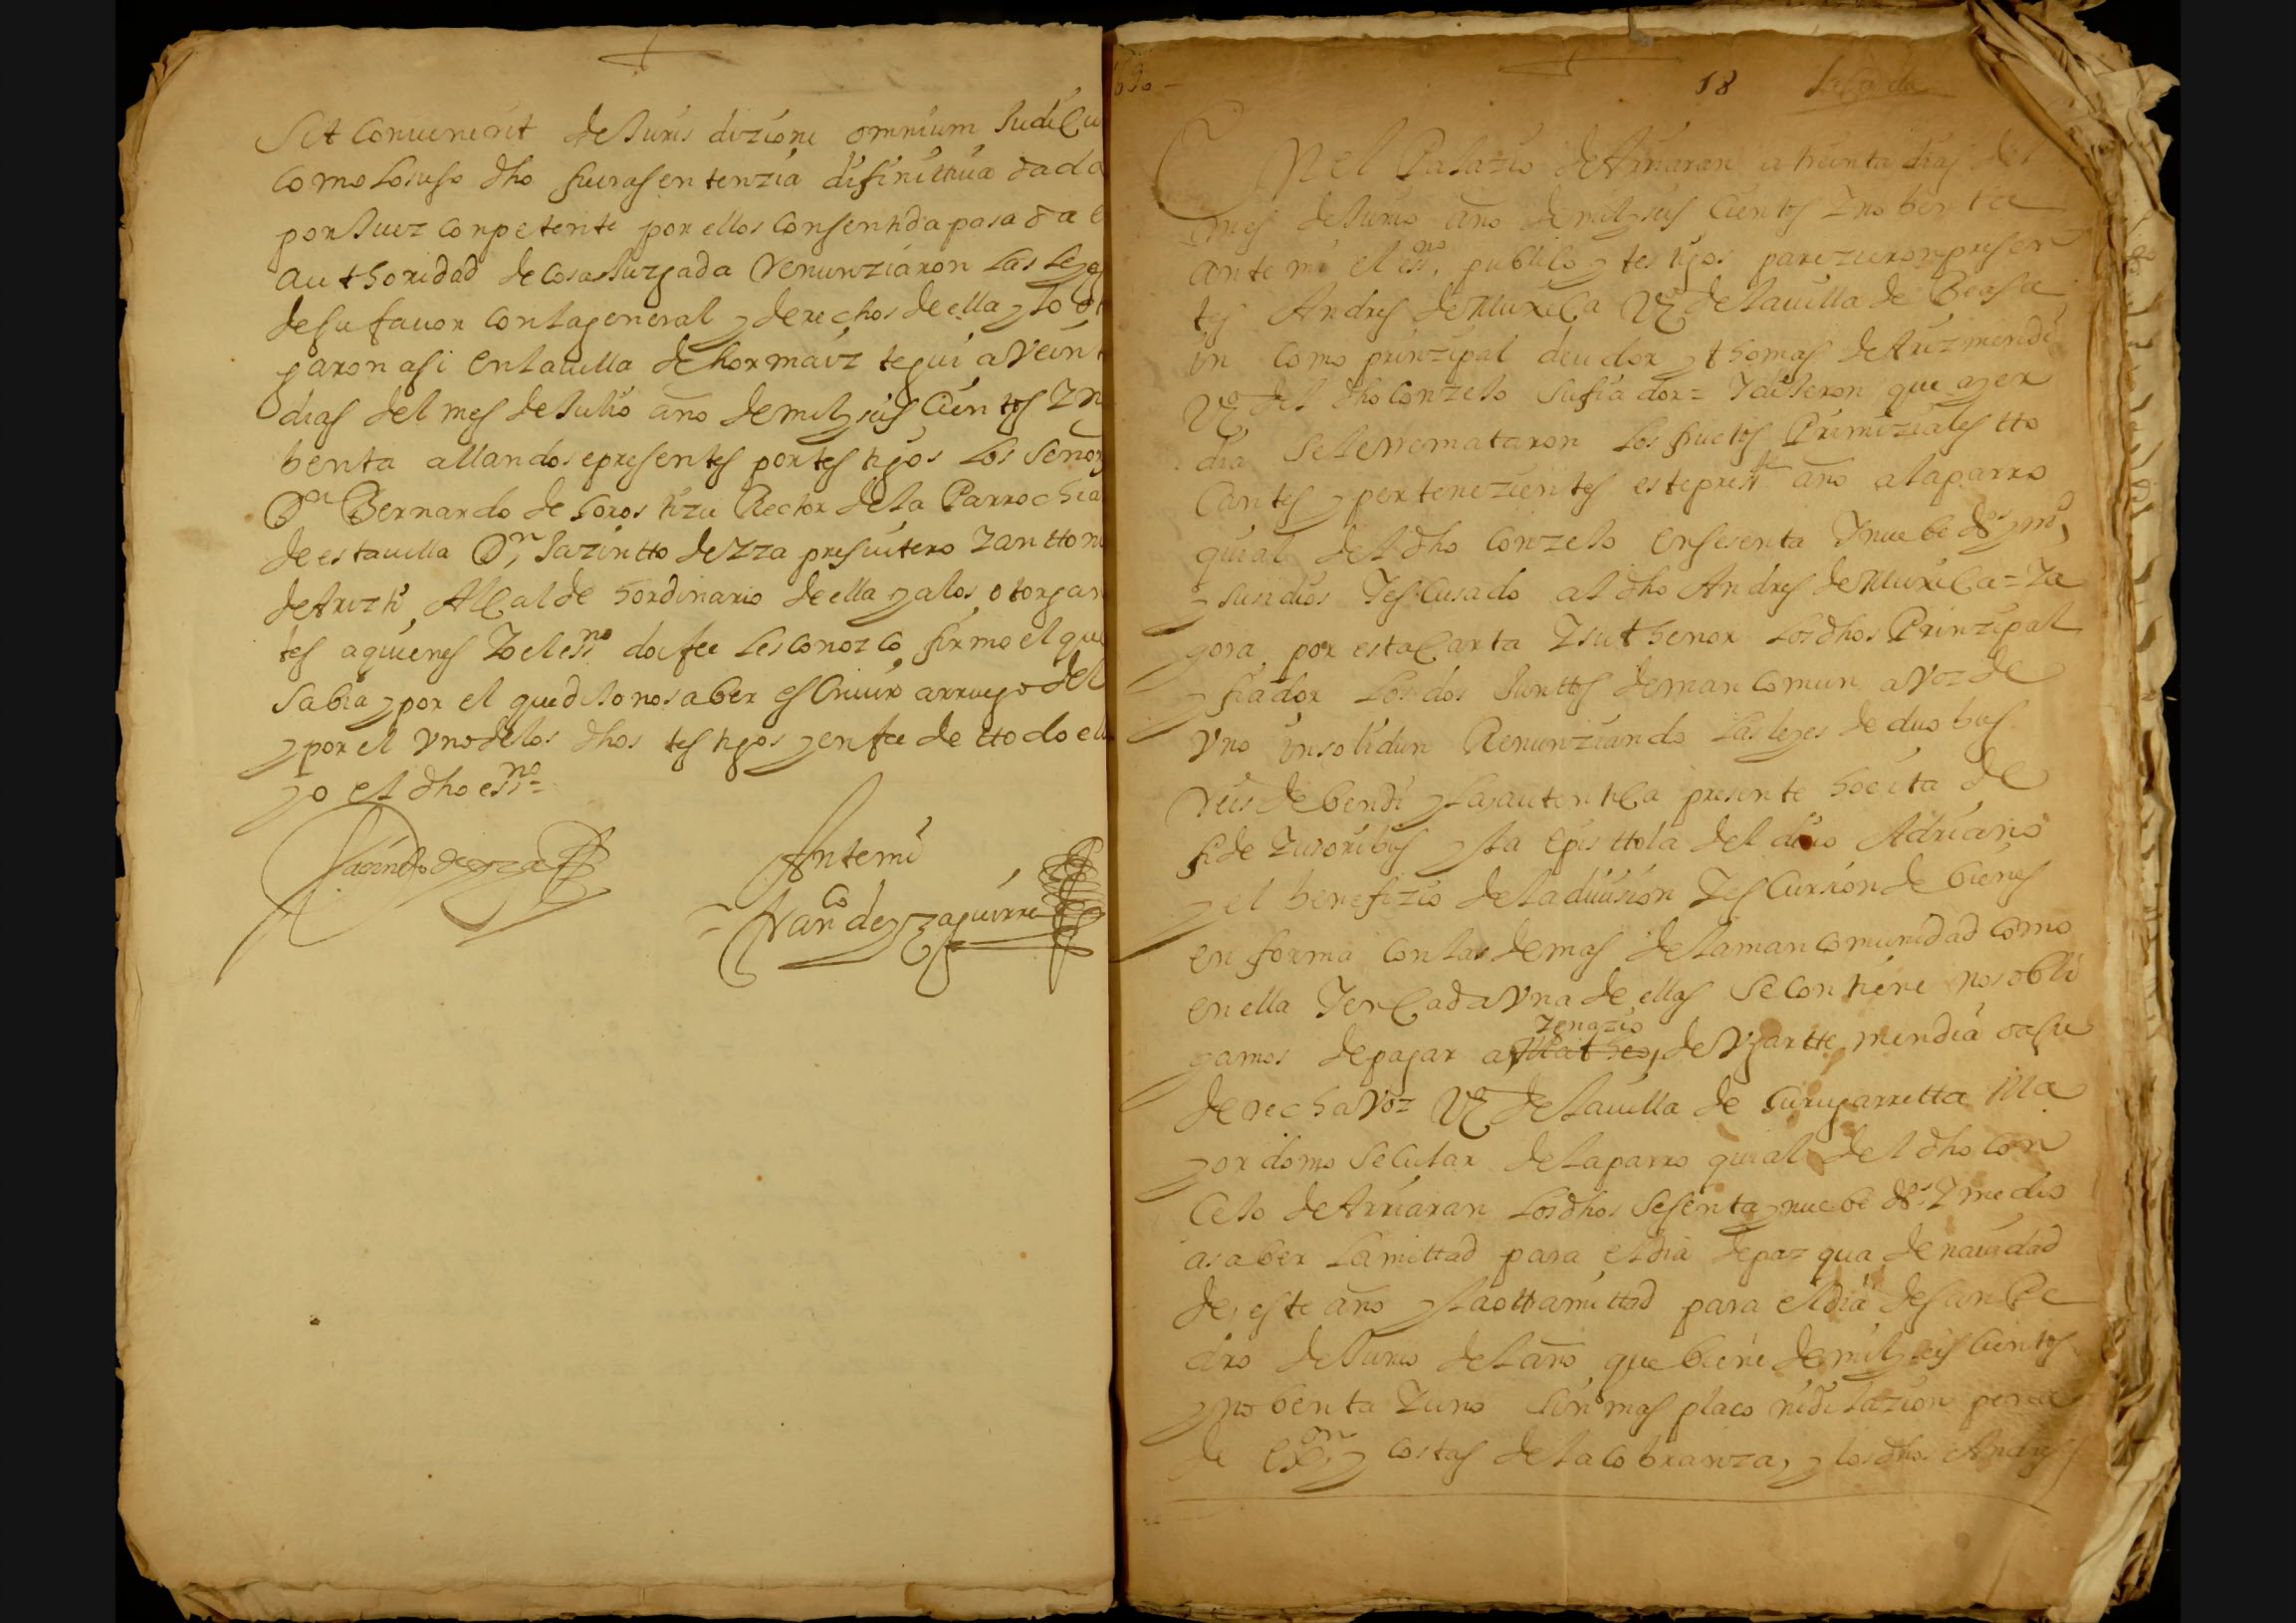 Sit convenerit de Juris dizione omnium Judicu
como lo suso dho fuera sentenzia difinittiva dada
por Juez conpetente por ellos consentida pasada e
authoridad de cosa Juzgada Renunziaron las leyes
de su favor con la general y derechos de ella y lo ot
garon asi en la villa de hormaiztegui a vein
dias del mes de Julio año de mil y seis cientos y n
benta allandose presentes por testigos los señor
Dn Bernardo de loros tizu Rector de la Parrochia
de esta villa Dn Jazintto de yza presvitero y anttoni
de Arizti Alcalde hordinario de ella y a los otorgan
tes a quienes yo el essno doi fee les conozco firmo el que
savia y por el que dijo no saver escrivir a rruego del
y por el vno de los dhos testigos y en fee de ttodo ell
yo el dho essno=
Jacintto de yza
Ante mi
Franco de yzaguirre
1690 -
18
En el Palazio de Arriaran a treinta dias del
mes de Junio año de mil y seis cientos y nobenta
ante mi el esno publico y testigos parezieron presen
tes Andres de Muxica vzo de la villa de Beasa
in como prinzipal deudor y thomas de Arizmendi
vzo del dho Conzejo su fiador= y dijeron que ayer
dia se le rremataron los fructos Primiziales tto
cantes y pertenezientes este presste año a la parro
quial del dho Conzejo en sesenta y nuebe ds y mo,
y susidios y escusado al dho Andres de Muxica= y a
gora por esta carta y su thenor los dhos Prinzipal
y fiador los dos Junttos de mancomun a voz de
vno insolidun Renunziando las leyes de duobus
rreis debendi y la autentica presente hocita de
fide Jusoribus y la epis ttola del dibo Adriano
y el benefizio de la divisiòn y escursion de bienes
en forma con las demas de la mancomunidad como
en ella y en cada vna de ellas se contiene nos obli
ygnazio
gamos de pagar a Matheo, de vgartte mendia o a su
derecha voz vzo de la villa de çumarretta Ma
yordomo secular de la parroquial del dho Con
cejo de Arriaran los dhos sesenta y nuebe ds y medio
a saber la mittad para el dia de pazqua de navidad
de este año y la otra mittad para el dia de san Pe
dro de Junio del año que biene de mil y seis cientos
y nobenta y uno sin mas placo ni dilazion pena
de exon y costas de la cobranza, y los dhos Andres